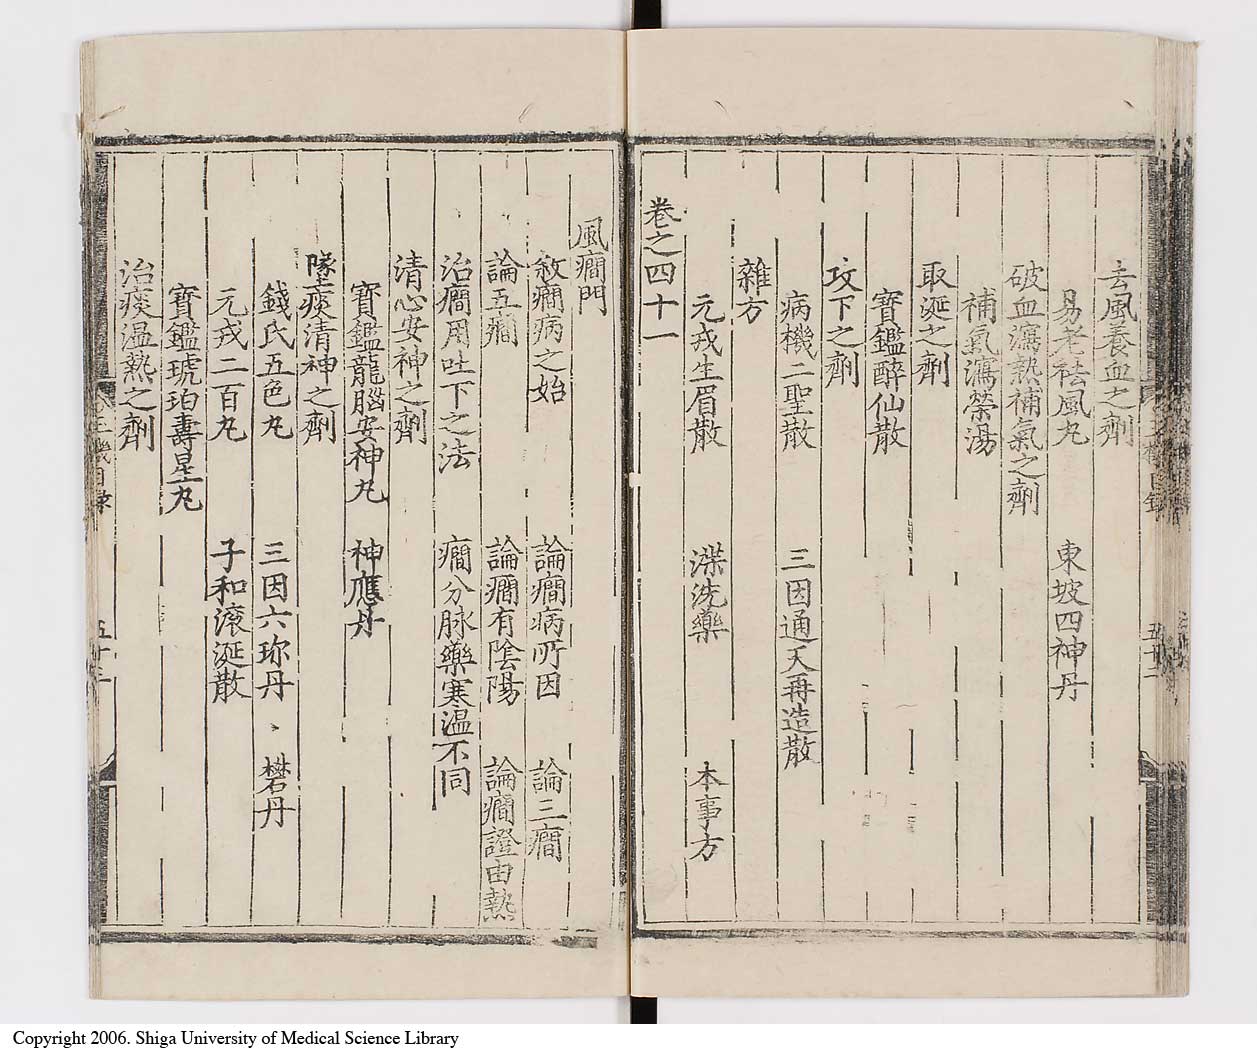 去風養血之劑
易老祛風丸　東坡四神丹
破血瀉熱補氣之劑
補氣瀉榮湯
取涎之劑
寶鑑醉仙散
攻下之劑
病機二聖散　三因通天再造散
雜方
元戎生眉散　渫洗藥　本事方
卷之四十一
風癎門
敘癎病之始　論癎病所因　論三癎
論五癎　論癎有陰陽　論癎證由熱
治癎用吐下之法　癎分脉藥寒温不同
清心安神之劑
寶鑑龍腦安神丸　神應丹
墜痰清神之劑
錢氏五色丸　三因六珎丹　礬丹
元戎二百丸　子和滚涎散
寶鑑琥珀壽星丸
治痰温熱之劑
Copyright 2006. Shiga University of Medical Science Library